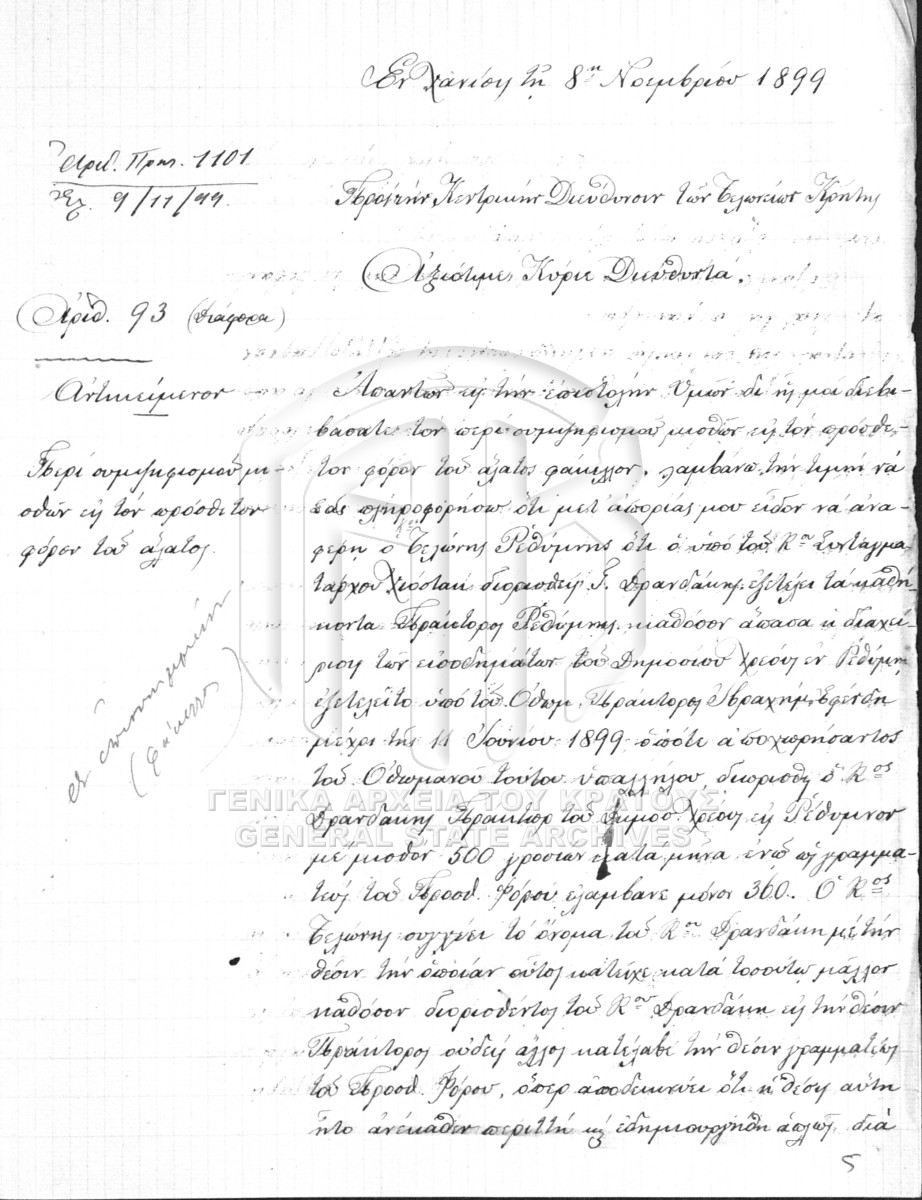 Ἐν Χανίοις τῇ 8ῃ Νοεμβρίου 1899
Ἀριθ. Πρωτ. 1101
9/11/99
Πρὸς τὴν Κεντρικὴν Διεύθυνσιν τῶν Τελωνείων Κρήτης
Ἀξιότιμε Κύριε Διευθυντά,
Ἀριθ. 93 (διάφορα)
Ἀντικείμενον
Περὶ συμψηφισμοῦ μι-
σθῶν εἰς τὸν πρόσθετον
φόρον τοῦ ἅλατος.
Ἀπαντῶν εἰς τὴν ἐπιστολὴν Ὑμῶν δι' ἧς μοὶ διεβι-
βάσατε τὸν περὶ συμψηφισμοῦ μισθῶν εἰς τὸν πρόσθε-
τον φόρον τοῦ ἅλατος φάκελλον, λαμβάνω τὴν τιμὴν νὰ
Σᾶς πληροφορήσω ὅτι μετ' ἀπορίας μου εἶδον νὰ ἀνα-
φέρῃ ὁ Τελώνης Ρεθύμνης ὅτι ὁ ὑπὸ τοῦ Κου Συνταγμα-
τάρχου Χιόστακ διορισθεὶς Γ. Δρανδάκης ἐξετέλει τὰ καθή-
κοντα Πράκτορος Ρεθύμνης καθόσον ἅπασα ἡ διαχεί-
ρισις τῶν εἰσοδημάτων τοῦ Δημοσίου Χρέους ἐν Ρεθύμνῃ
ἐξετελεῖτο ὑπὸ τοῦ Ὀθωμ. Πράκτορος Ἰβραχὴμ Ἐφένδη
μέχρι τῆς 11 Ἰουνίου 1899, ὁπότε ἀποχωρήσαντος
τοῦ Ὀθωμανοῦ τούτου ὑπαλλήλου, διωρίσθη ὁ Κος
Δρανδάκης Πράκτωρ τοῦ Δημοσ. Χρέους εἰς Ρέθυμνον
μὲ μισθὸν 500 γροσίων κατὰ μῆνα ἐνῷ ὡς γραμμα-
τεὺς τοῦ Προσθ. Φόρου ἐλάμβανε μόνον 360. Ὁ Κος
Τελώνης συγχύει τὸ ὄνομα τοῦ Κου Δρανδάκη μὲ τὴν
θέσιν τὴν ὁποίαν οὗτος κατεῖχε κατὰ τοσούτῳ μᾶλλον
καθόσον διορισθέντος τοῦ Κου Δρανδάκη εἰς τὴν θέσιν
Πράκτορος οὐδεὶς ἄλλος κατέλαβε τὴν θέσιν γραμματέως
τοῦ Προσθ. Φόρου, ὅπερ ἀποδεικνύει ὅτι ἡ θέσις αὕτη
ἦτο ἀνέκαθεν περιττὴ καὶ ἐδημιουργήθη ἁπλῶς διὰ
5
ΓΕΝΙΚΑ ΑΡΧΕΙΑ ΤΟΥ ΚΡΑΤΟΥΣ
GENERAL STATE ARCHIVES